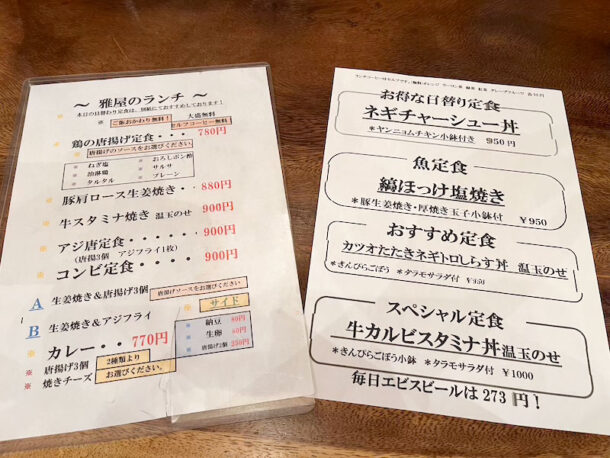 ～ 雅屋のランチ ～
本日の日替わり定食は、別紙にておすすめしております！
※ ご飯おかわり無料！ 大盛無料！
セルフコーヒー無料！
※ 鶏の唐揚げ定食・・・ 780円
唐揚げのソースをお選びください
※ ねぎ塩 ※ おろしポン酢
※ 油淋鶏 ※ サルサ
※ タルタル ※ プレーン
※ 豚肩ロース生姜焼き・・ 880円
※ 牛スタミナ焼き 温玉のせ 900円
※ アジ唐定食・・・・・・ 900円
(唐揚3個 アジフライ1枚)
※ コンビ定食・・・・ 900円
A 生姜焼き&唐揚げ3個 唐揚げソースをお選びください
B 生姜焼き&アジフライ
※ サイド
納豆 80円
生卵 80円
唐揚げ2個 250円
※ カレー・・ 770円
※ 唐揚げ3個
※ 焼きチーズ
2種類より
お選びください。
お得な日替り定食
ネギチャーシュー丼
＊ヤンニョムチキン小鉢付き 950円
魚定食
縞ほっけ塩焼き
＊豚生姜焼き・厚焼き玉子小鉢付 ￥950
おすすめ定食
カツオたたきネギトロしらす丼 温玉のせ
＊きんぴらごぼう ＊タラモサラダ付 ￥950
スペシャル定食
牛カルビスタミナ丼温玉のせ
＊きんぴらごぼう小鉢 ＊タラモサラダ付 ￥1000
毎日エビスビールは 273 円！